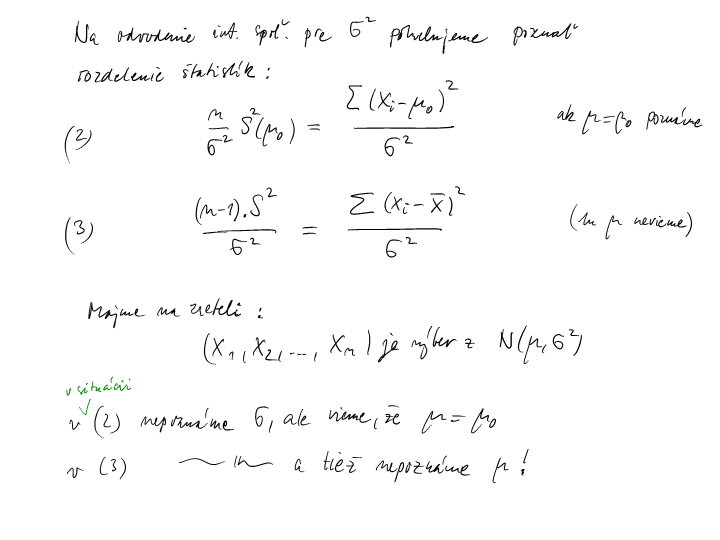 Na odvodenie int. spoľ. pre σ² potrebujeme poznať
rozdelenie štatistík:
(2) n/σ² S²(μ₀) = Σ(Xᵢ-μ₀)²/σ² ak μ=μ₀ poznáme
(3) (n-1).S²/σ² = Σ(Xᵢ-X̄)²/σ² (tu μ nevieme)
Majme na zreteli:
(X₁, X₂, ..., Xₙ) je výber z N(μ, σ²)
v situácii
v (2) nepoznáme σ, ale vieme, že μ = μ₀
v (3) —〃— a tiež nepoznáme μ!